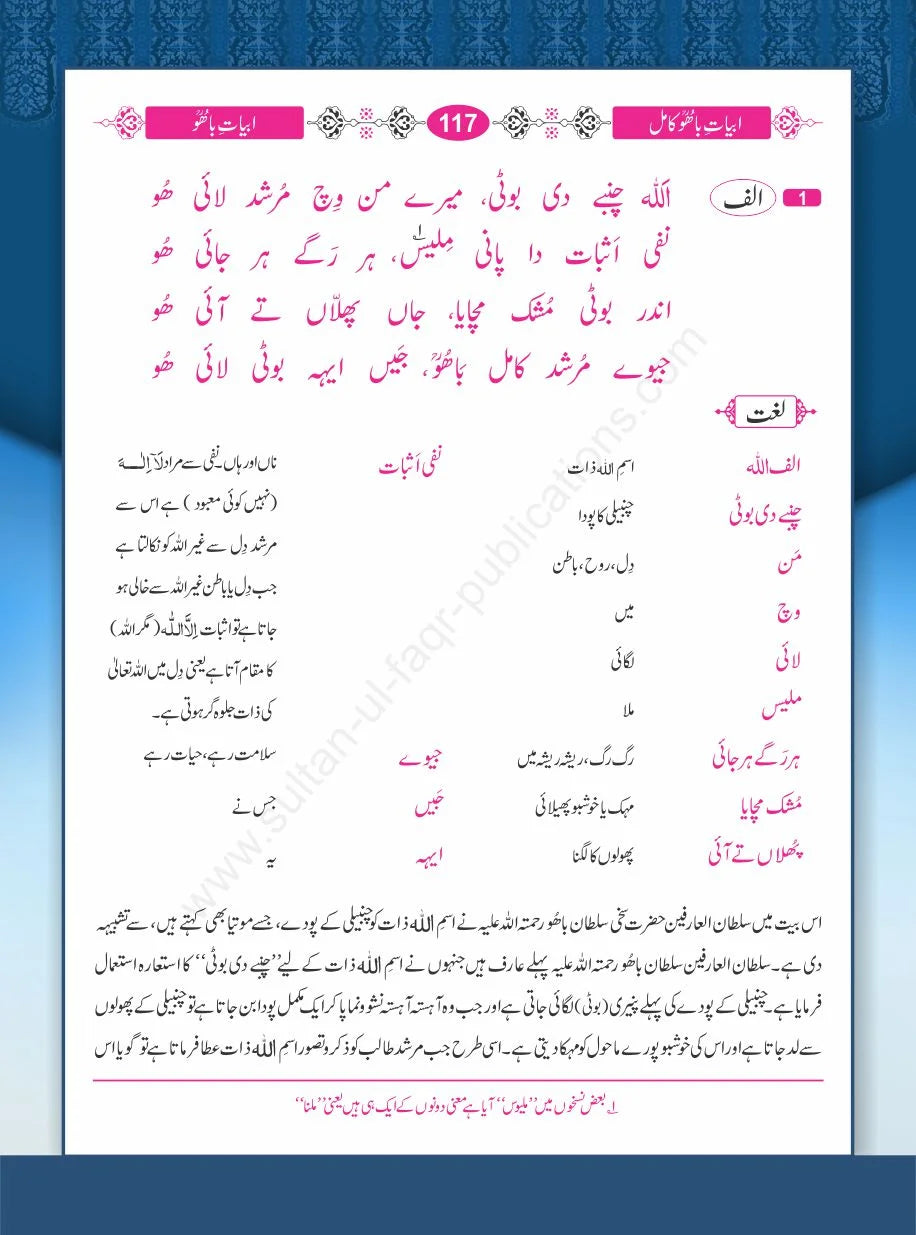 ابیاتِ باھُوؒ کامل
117
ابیاتِ باھُوؒ
1
الف
اَللہ چنبے دی بوٹی، میرے من وِچ مُرشد لائی ھُو
نفی اَثبات دا پانی مِلیسؔ۱، ہر رَگے ہر جائی ھُو
اندر بوٹی مُشک مچایا، جاں پھلّاں تے آئی ھُو
جیوے مُرشد کامل بَاھُوؒ، جَیں ایہہ بوٹی لائی ھُو
لغت
الف اللہ
اسمِ اللہ ذات
چنبے دی بوٹی
چنبیلی کا پودا
مَن
دِل، روح، باطن
وِچ
میں
لائی
لگائی
ملیس
ملا
ہر رَگے ہر جائی
رگ رگ، ریشہ ریشہ میں
مُشک مچایا
مہک یا خوشبو پھیلائی
پُھلاں تے آئی
پھولوں کا لگنا
نفی اَثبات
ناں اور ہاں۔ نفی سے مراد لَآ اِلٰہَ
(نہیں کوئی معبود) ہے اس سے
مرشد دِل سے غیر اللہ کو نکالتا ہے
جب دِل یا باطن غیر اللہ سے خالی ہو
جاتا ہے تو اثبات اِلَّا اللّٰہ (مگر اللہ)
کا مقام آتا ہے یعنی دِل میں اللہ تعالیٰ
کی ذات جلوہ گر ہوتی ہے۔
جیوے
سلامت رہے، حیات رہے
جَیں
جس نے
ایہہ
یہ
اس بیت میں سلطان العارفین حضرت سخی سلطان باھُو رحمتہ اللہ علیہ نے اسمِ اللہ ذات کو چنبیلی کے پودے، جسے موتیا بھی کہتے ہیں، سے تشبیہہ
دی ہے۔ سلطان العارفین سلطان باھُو رحمتہ اللہ علیہ پہلے عارف ہیں جنہوں نے اسمِ اللہ ذات کے لیے ’’چنبے دی بوٹی‘‘ کا استعارہ استعمال
فرمایا ہے۔ چنبیلی کے پودے کی پہلے پنیری (بوٹی) لگائی جاتی ہے اور جب وہ آہستہ آہستہ نشوونما پا کر ایک مکمل پودا بن جاتا ہے تو چنبیلی کے پھولوں
سے لد جاتا ہے اور اس کی خوشبو پورے ماحول کو مہکا دیتی ہے۔ اسی طرح جب مرشد طالب کو ذکر و تصور اسمِ اللہ ذات عطا فرماتا ہے تو گویا اس
۱؎ بعض نسخوں میں ’’ملیوس‘‘ آیا ہے معنی دونوں کے ایک ہی ہیں یعنی ’’ملنا‘‘
www.sultan-ul-faqr-publications.com